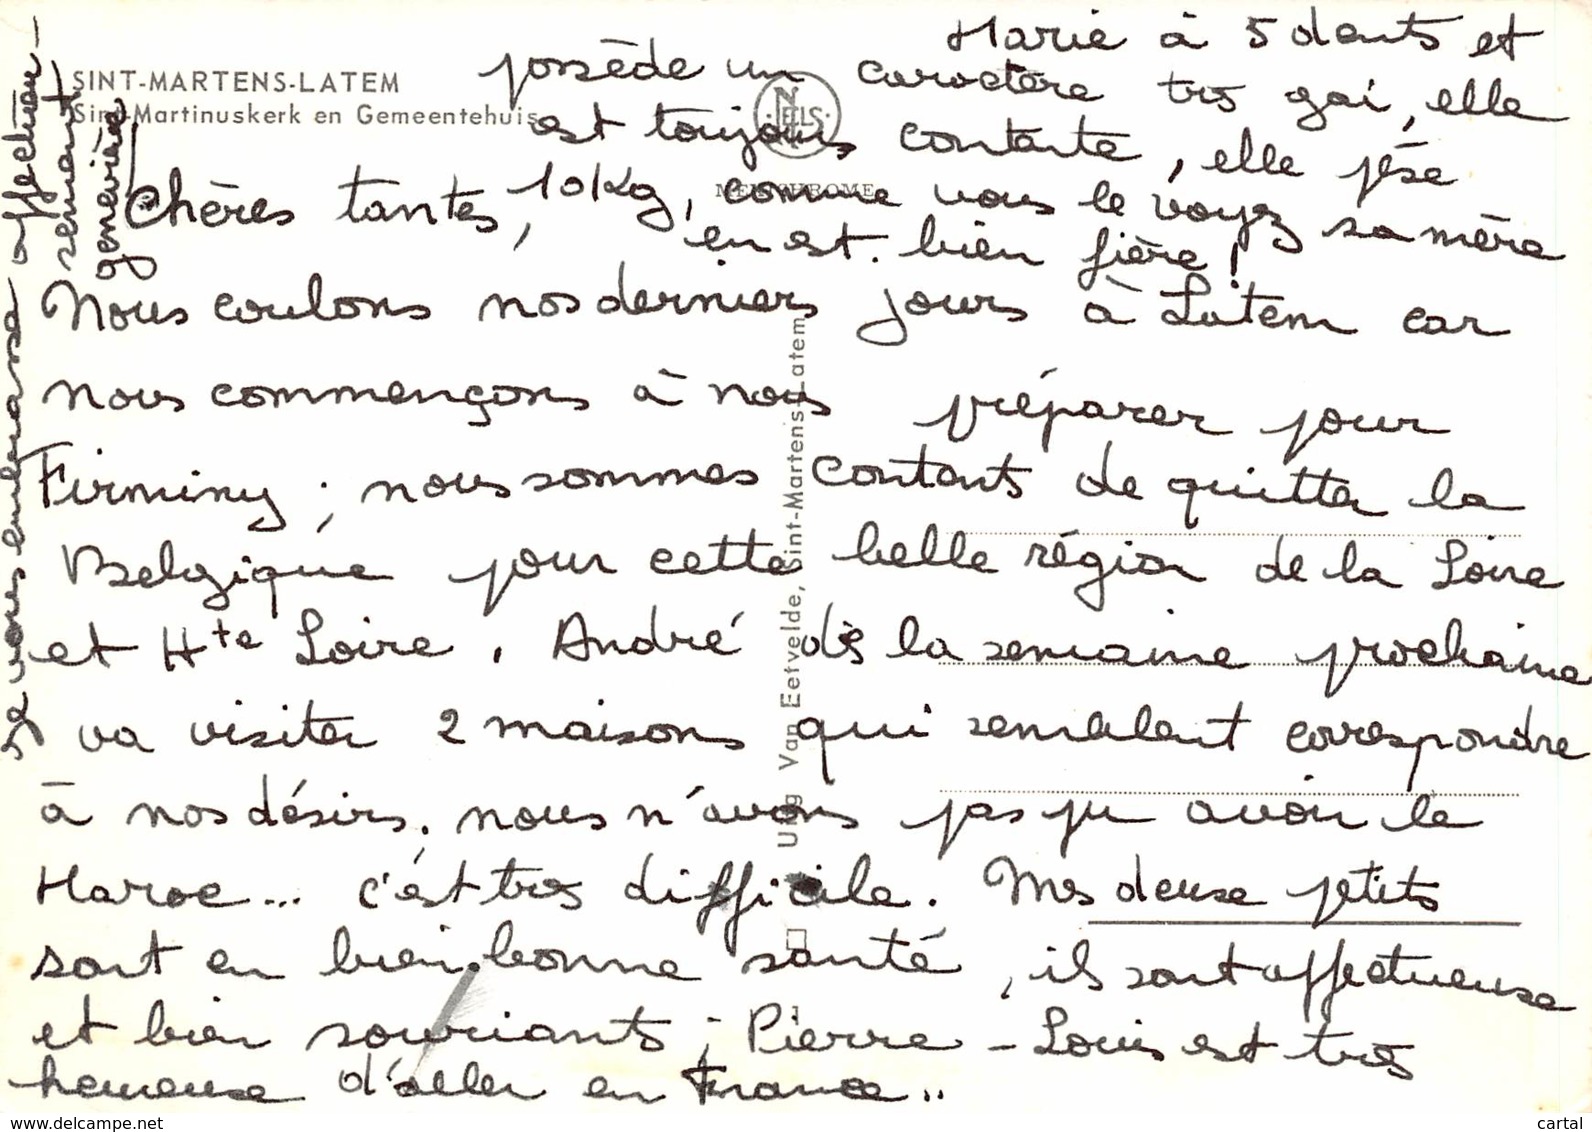 SINT-MARTENS-LATEM
Sint-Martinuskerk en Gemeentehuis
NELS
Uitg Van Eetvelde, Sint-Martens-Latem
Chères tantes,
Nous coulons nos derniers jours à Latem car
nous commençons à nous préparer pour
Firminy ; nous sommes contents de quitter la
Belgique pour cette belle région de la Loire
et Hte Loire. André dès la semaine prochaine
va visiter 2 maisons qui semblent correspondre
à nos désirs, nous n'avons pas pu avoir le
Maroc... c'est très difficile. Mes deux petits
sont en bien bonne santé, ils sont affectueux
et bien souriants ; Pierre-Louis est très
heureux d'aller en France..
Marie à 5 dents et
possède un caractère très gai, elle
est toujours contente, elle pèse
10 Kg, comme vous le voyez sa mère
en est bien fière !
Je vous embrasse affectueu-
sement
Geneviève
cartal
www.delcampe.net